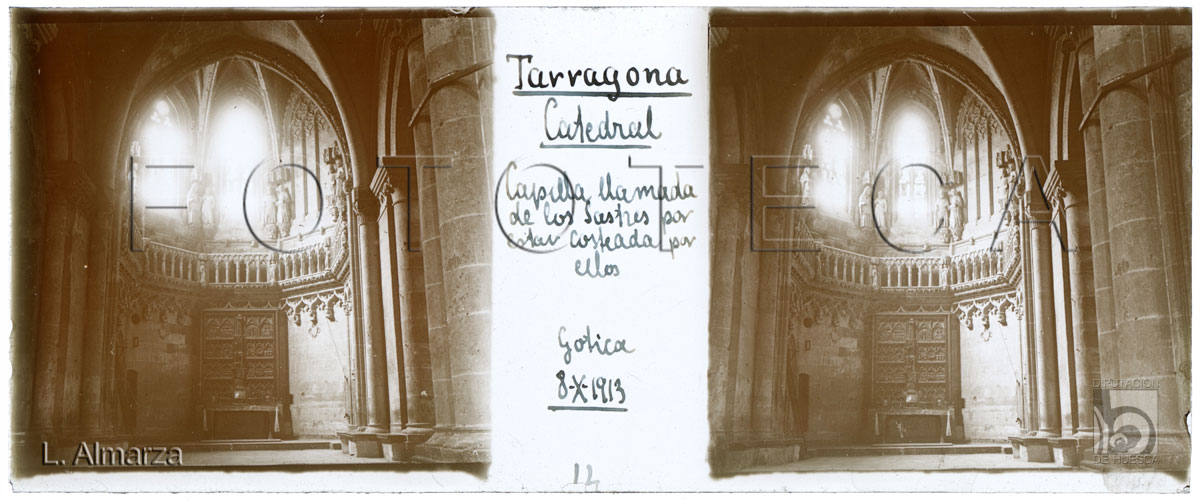 Tarragona
Catedral
Capilla llamada
de los Sastres por
estar costeada por
ellos
Gotica
8-X-1913
12
FOTOTECA
L. Almarza
DIPUTACION
DE HUESCA